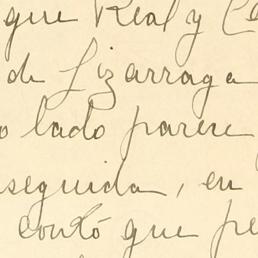 que Real y Ce
de Lizarraga
o lado parere
seguida, en
contó que pe